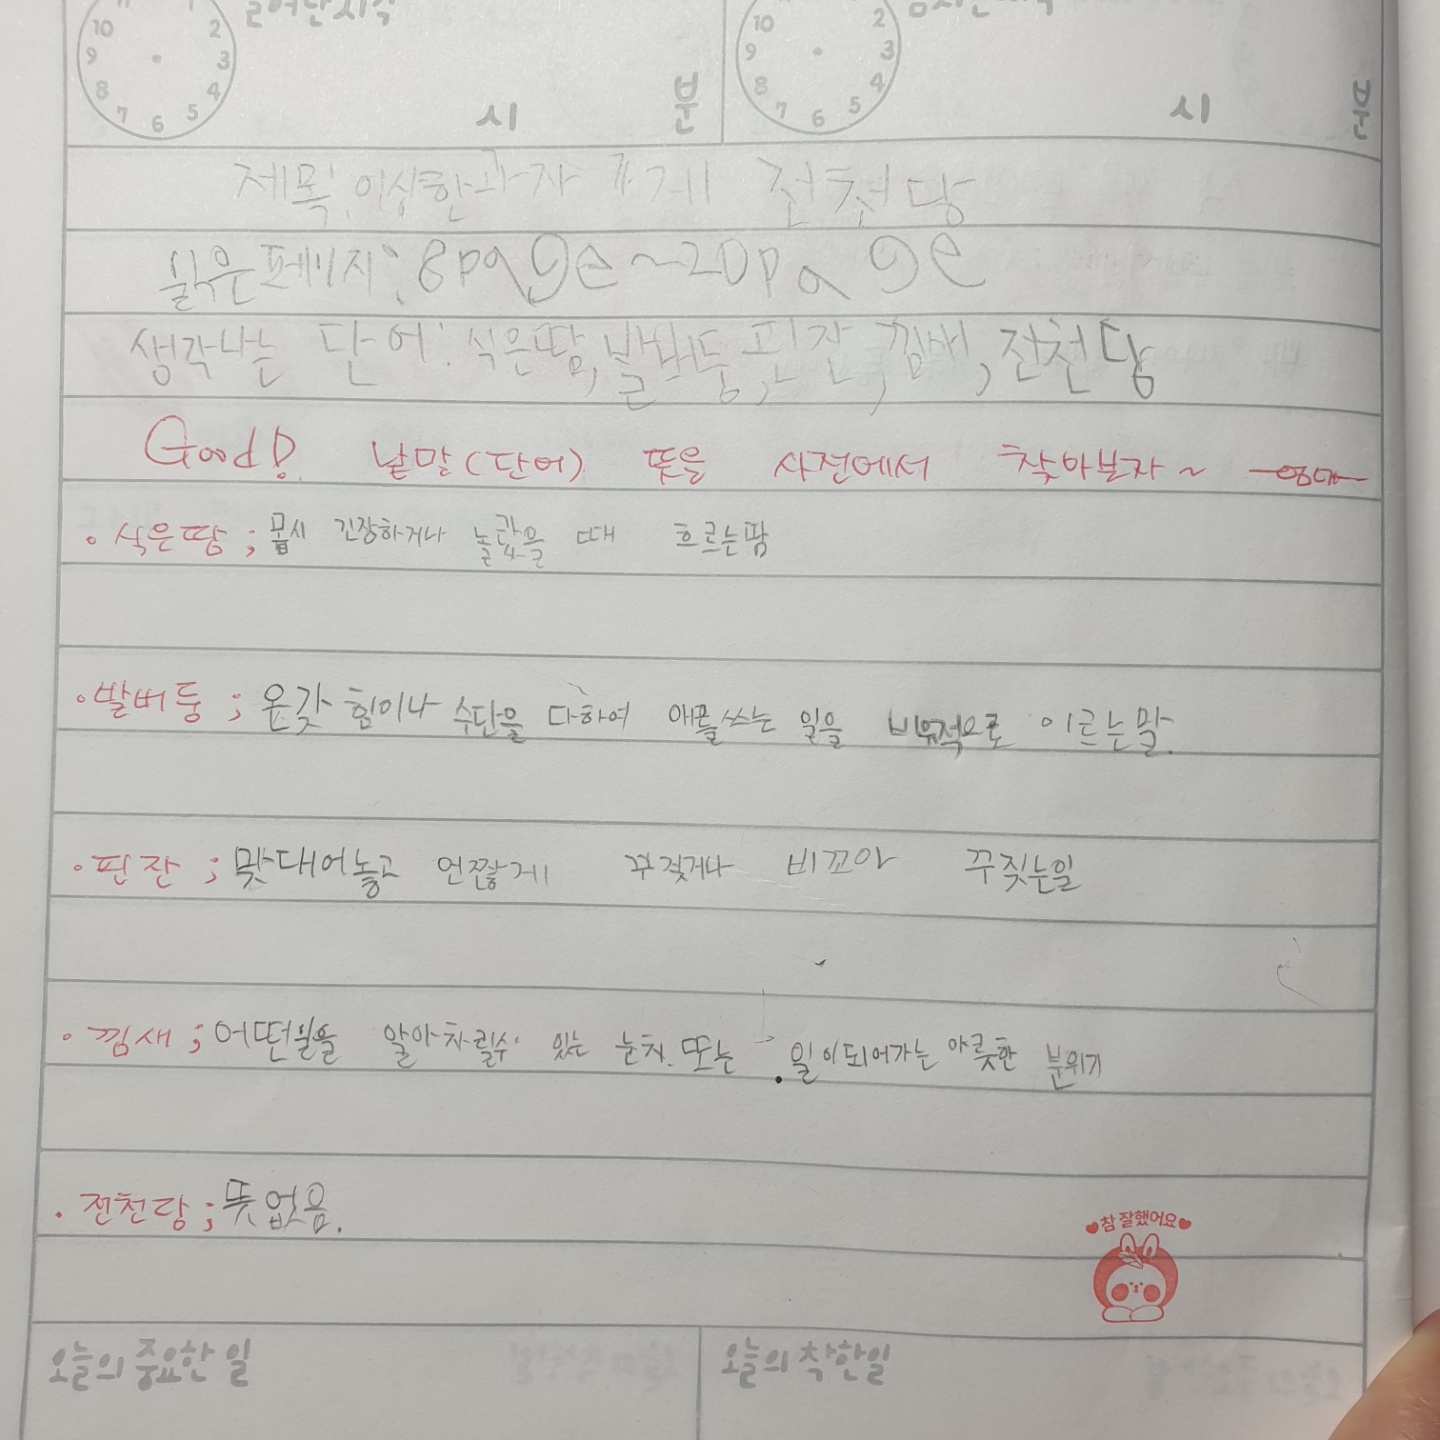 일어난시각
10 9 8 7 6 5 4 3 2 1
시 분
10 9 8 7 6 5 4 3 2
시 분
제목: 이상한과자 가게 전천당
읽은페이지: 8page~20page
생각나는 단어: 식은땀, 발버둥, 핀잔, 낌새, 전천당
Good! 낱말(단어) 뜻을 사전에서 찾아보자~
• 식은땀 ; 몹시 긴장하거나 놀랐을 때 흐르는땀
• 발버둥 ; 온갖 힘이나 수단을 다하여 애를쓰는 일을 비유적으로 이르는말.
• 핀잔 ; 맞대어놓고 언짢게 꾸짖거나 비꼬아 꾸짖는일
• 낌새 ; 어떤일을 알아차릴수 있는 눈치. 또는 일이되어가는 야릇한 분위기
• 전천당 ; 뜻없음.
참 잘했어요
오늘의 중요한 일
오늘의 착한일